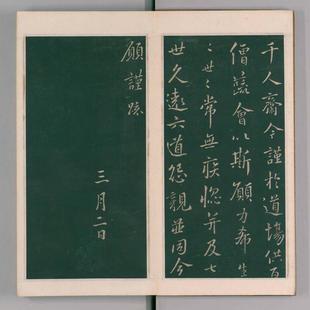 千人齋今謹於道場供百
僧蔬會以斯願力希生
〻世〻常無疾惱并及七
世久遠六道怨親並同今
願謹疏
三月二日